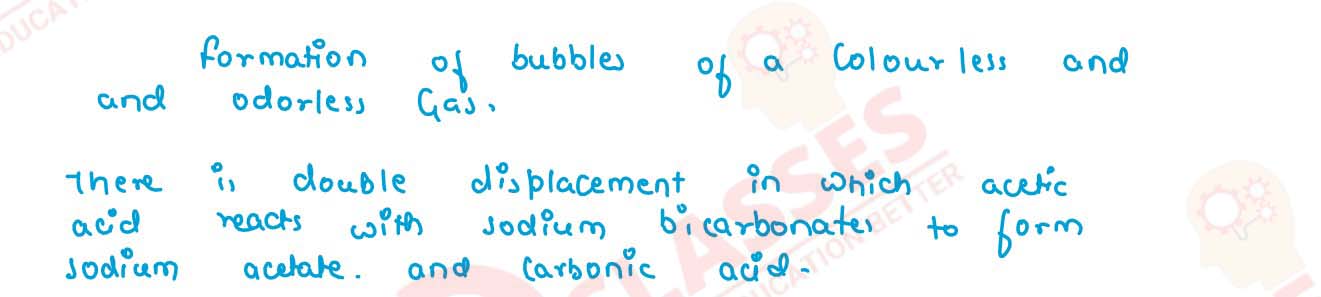 formation of bubbles of a Colourless and
and odorless Gas.
There is double displacement in which acetic
acid reacts with sodium bicarbonates to form
sodium acetate. and Carbonic acid.
CLASSES